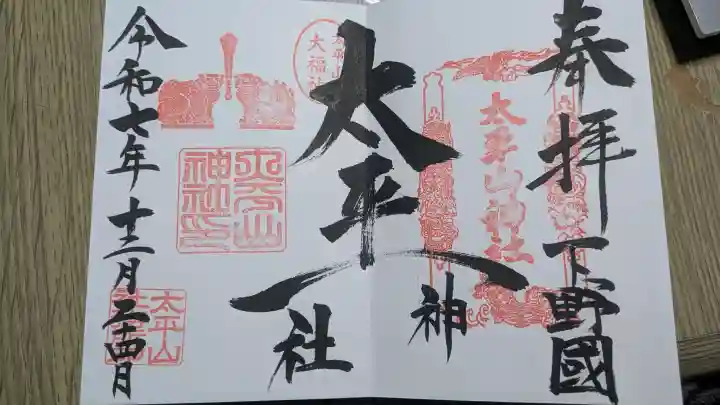 奉拝
下野國
太平山神社
太平山
大福社
太平
神社
令和七年十二月二十四日
太平山
神社印
太平山